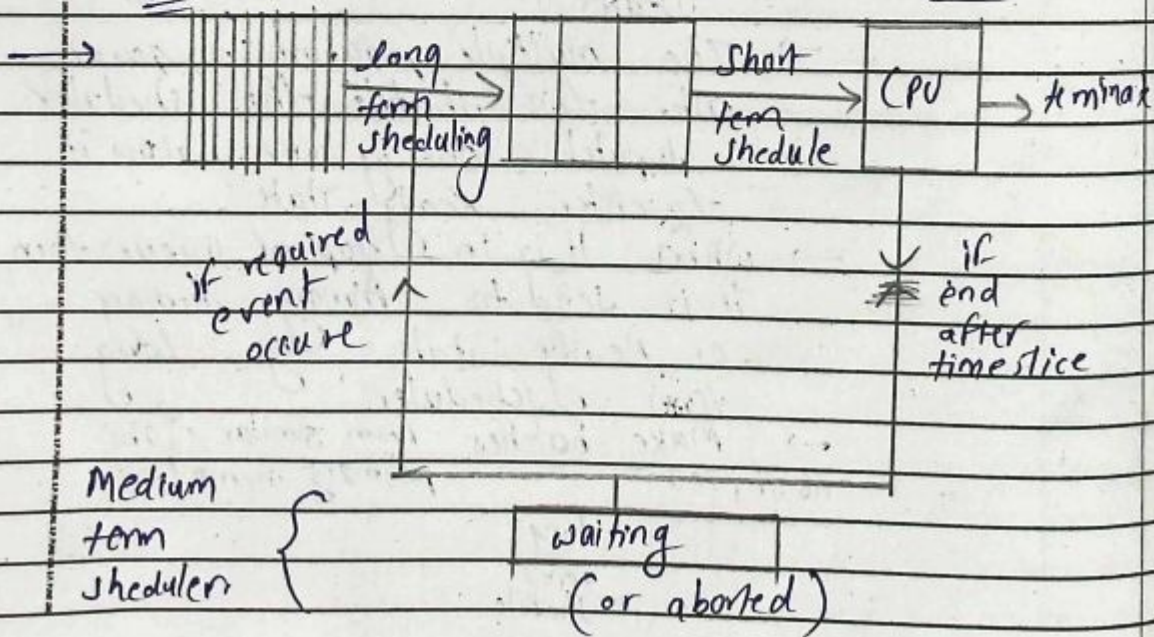 long
term
sheduling
Short
tem
shedule
CPU
teminat
if required
event
occure
if
end
after
timeslice
Medium
term
sheduler
waiting
(or aborted)